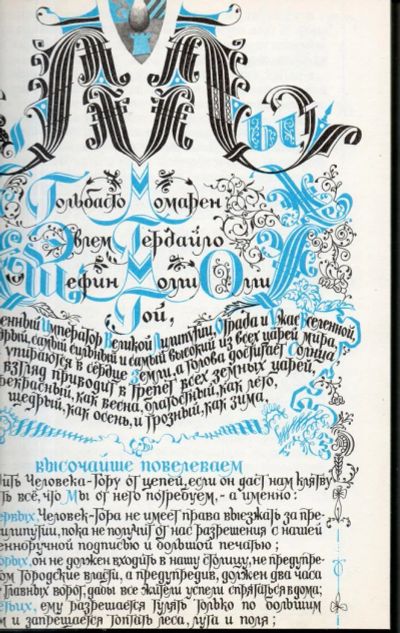 Мы
Гольбасто Момарен
Эвлем Гердайло
Шефин Молли Олли
Гой,
енный Император Великой Лилипутии, Отрада и Ужас Вселенной,
рый, самый сильный и самый высокий из всех царей мира,
упираются в сердце Земли, а голова достигает Солнца
взгляд приводит в трепет всех земных царей,
рекрасный, как весна, благостный, как лето,
щедрый, как осень, и грозный, как зима,
высочайше повелеваем
ить Человека-Гору от цепей, если он даст нам клятву
ть всё, что Мы от него потребуем, - а именно:
ервых, Человек-Гора не имеет права выезжать за пре-
илипутии, пока не получит от нас разрешения с нашей
енноручной подписью и большой печатью;
орых, он не должен входить в нашу столицу, не предупре-
ом городские власти, а предупредив, должен два часа
главных ворот, дабы все жители успели спрятаться в дома;
етьих, ему разрешается гулять только по большим
м и запрещается топтать леса, луга и поля;